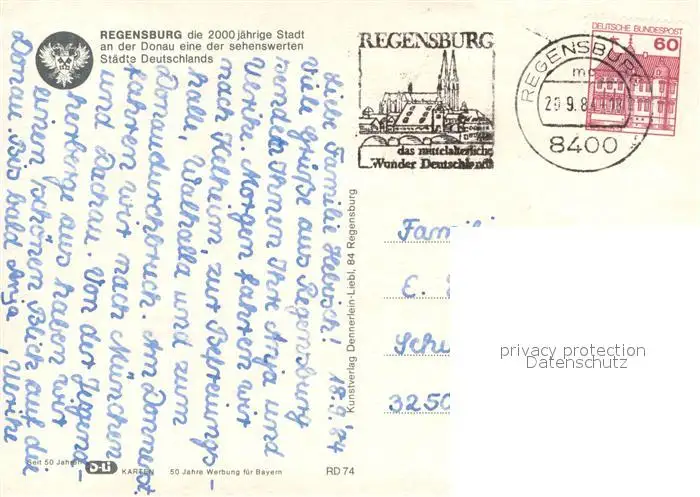 REGENSBURG die 2000 jährige Stadt
an der Donau eine der sehenswerten
Städte Deutschlands
REGENSBURG
das mittelalterliche
Wunder Deutschlands
REGENSBURG
8400
DEUTSCHE BUNDESPOST
60
Liebe Familie 19.9.84
Viele Grüße aus Regensburg
senden Ihnen Ihre Anja und
Ulrike. Morgen fahren wir
nach Kelheim, zur Befreiungs-
halle, Walhalla und zum
Donaudurchbruch. Am Donnerst.
fahren wir nach München
und Dachau. Von der Jugend-
herberge aus haben wir
einen schönen Blick auf die
Donau. Bis bald Anja, Ulrike
Kunstverlag Dennerlein-Liebl, 84 Regensburg
Famili
E.
Schu
3250
privacy protection
Datenschutz
Seit 50 Jahren
KARTEN
50 Jahre Werbung für Bayern
RD 74